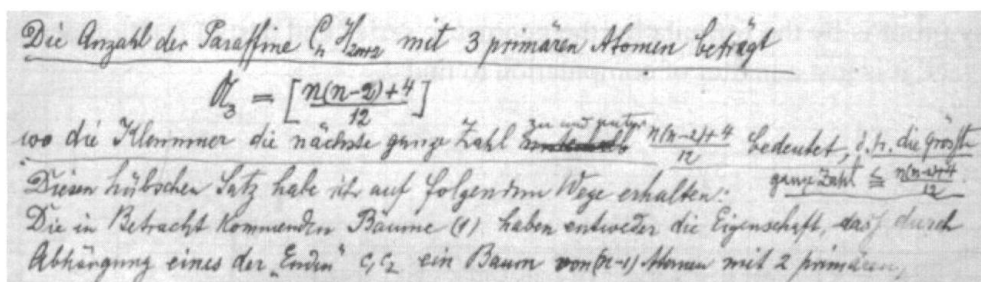 Die Anzahl der Paraffine CₙH₂ₙ₊₂ mit 3 primären Atomen beträgt
𝔄₃ = [ (n(n-2)+4)/12 ]
wo die Klammer die nächste ganze Zahl (n(n-2)+4)/12 bedeutet, d.h. die größte
ganze Zahl ≦ (n(n-2)+4)/12.
Diesen hübschen Satz habe ich auf folgendem Wege erhalten:
Die in Betracht kommenden Bäume (1) haben entweder die Eigenschaft, daß durch
Abhängung eines der „Enden" C₁C₂ ein Baum von (n-1) Atomen mit 2 primären,